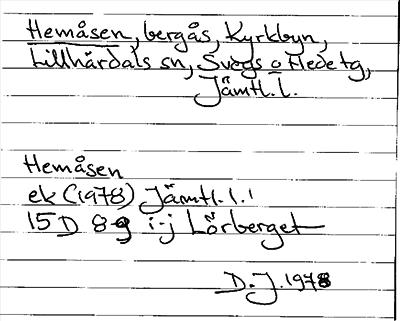 Hemåsen, bergås, Kyrkbyn,
Lillhärdals sn, Svegs o Hede tg,
Jämtl. l.
Hemåsen
ek (1978) Jämtl. l.
15 D 8-9 i-j Lörberget
D. J. 1978